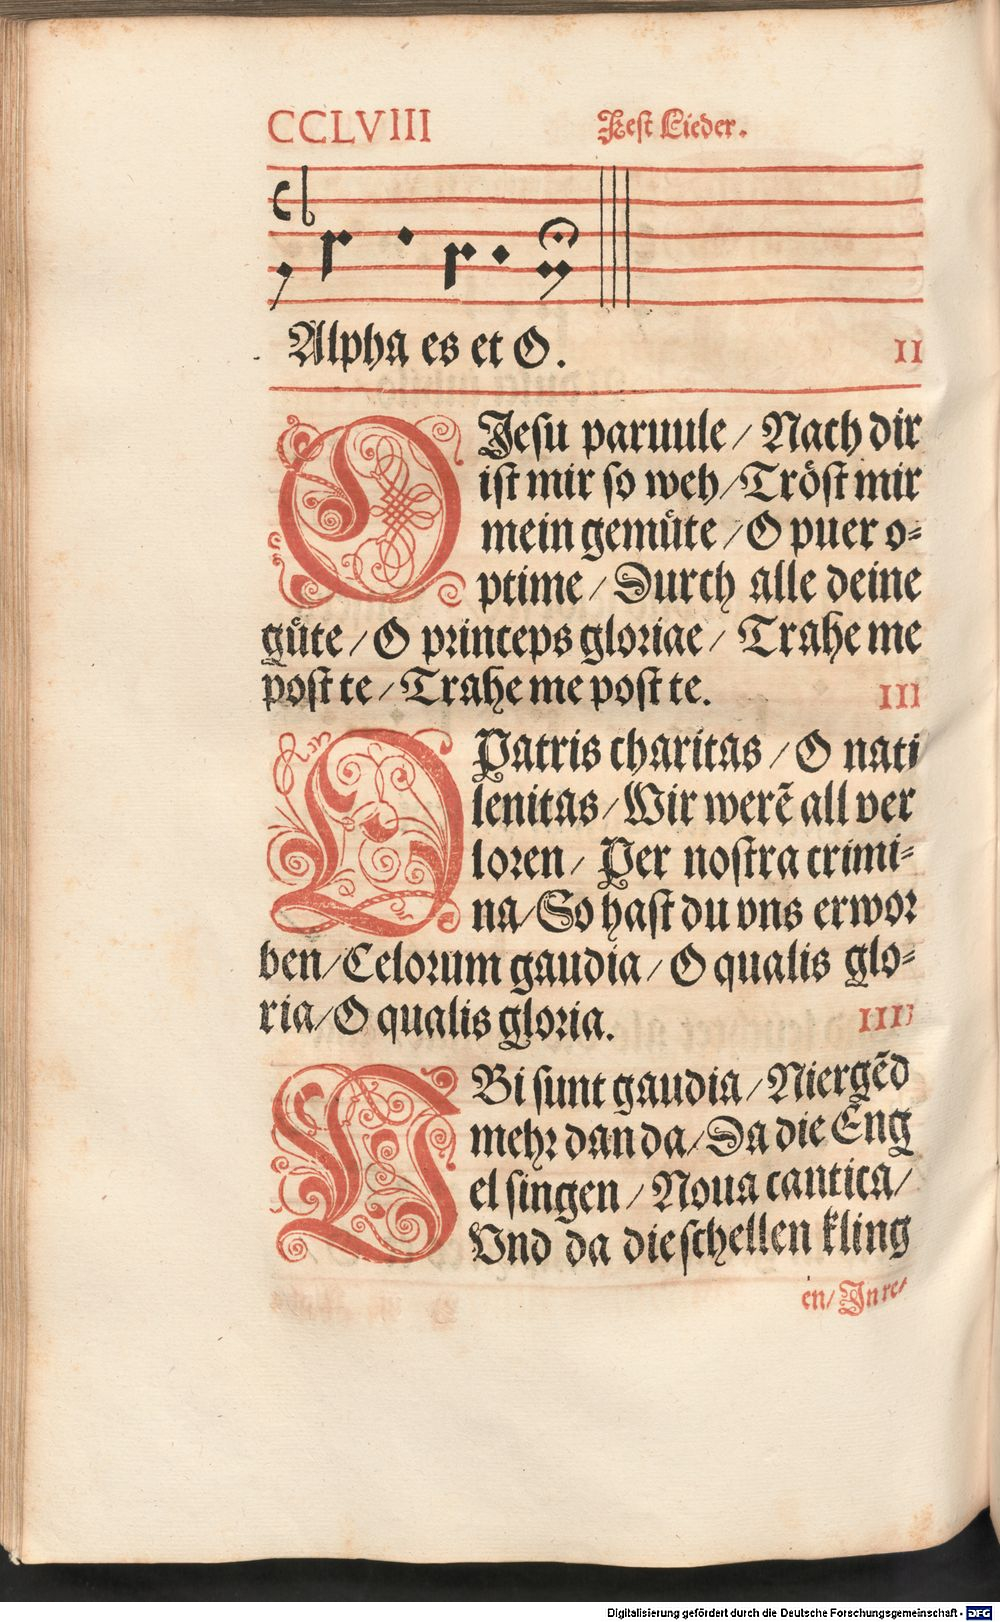 CCLVIII Fest Lieder.
Alpha es et O. II
O Jesu paruule / Nach dir
ist mir so weh / Tröst mir
mein gemuͤte / O puer o⸗
ptime / Durch alle deine
guͤte / O princeps gloriae / Trahe me
post te / Trahe me post te. III
O Patris charitas / O nati
lenitas / Wir werẽ all ver
loren / Per nostra crimi⸗
na / So hast du vns erwor
ben / Celorum gaudia / O qualis glo⸗
ria / O qualis gloria. IIII
VBi sunt gaudia / Niergẽd
mehr dan da / Da die Eng
el singen / Noua cantica /
Vnd da die schellen kling
en / In re⸗
Digitalisierung gefördert durch die Deutsche Forschungsgemeinschaft - DFG